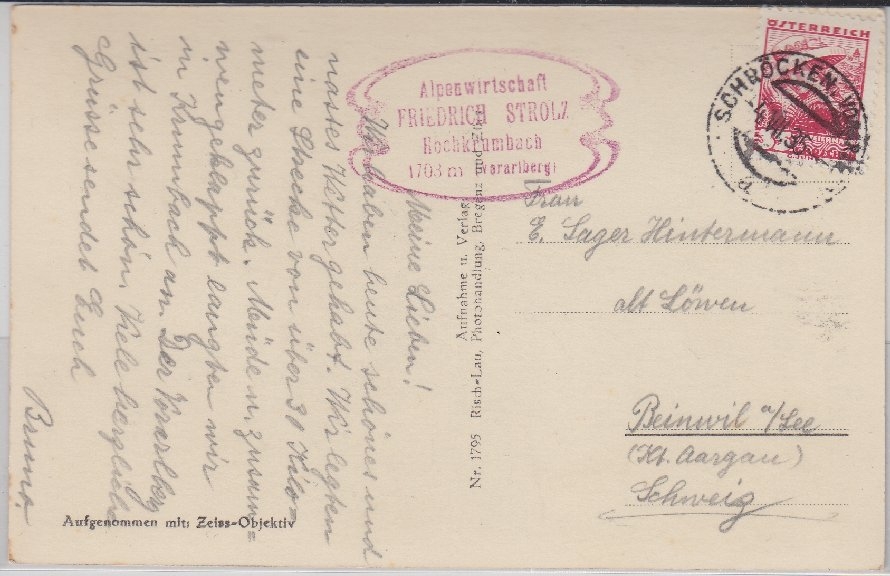 Meine Lieben!
Wir haben heute schönes und
nasses Wetter gehabt. Wir legten
eine Strecke von über 30 Kilo-
meter zurück. Müde u. zusam-
mengeklappt langten wir
in Krumbach an. Der Vorarlberg
ist sehr schön. Viele herzliche
Grüsse sendet Euch
Bruno.
Alpenwirtschaft
FRIEDRICH STROLZ
Hochkrumbach
1703 m (Vorarlberg)
Aufnahme u. Verlag:
Nr. 1795 Risch-Lau, Photohandlung, Bregenz und
Aufgenommen mit: Zeiss-Objektiv
ÖSTERREICH
SCHRÖCKEN
Frau
E. Sager Hintermann
alt Löwen
Beinwil a/See
(Kt. Aargau)
Schweiz